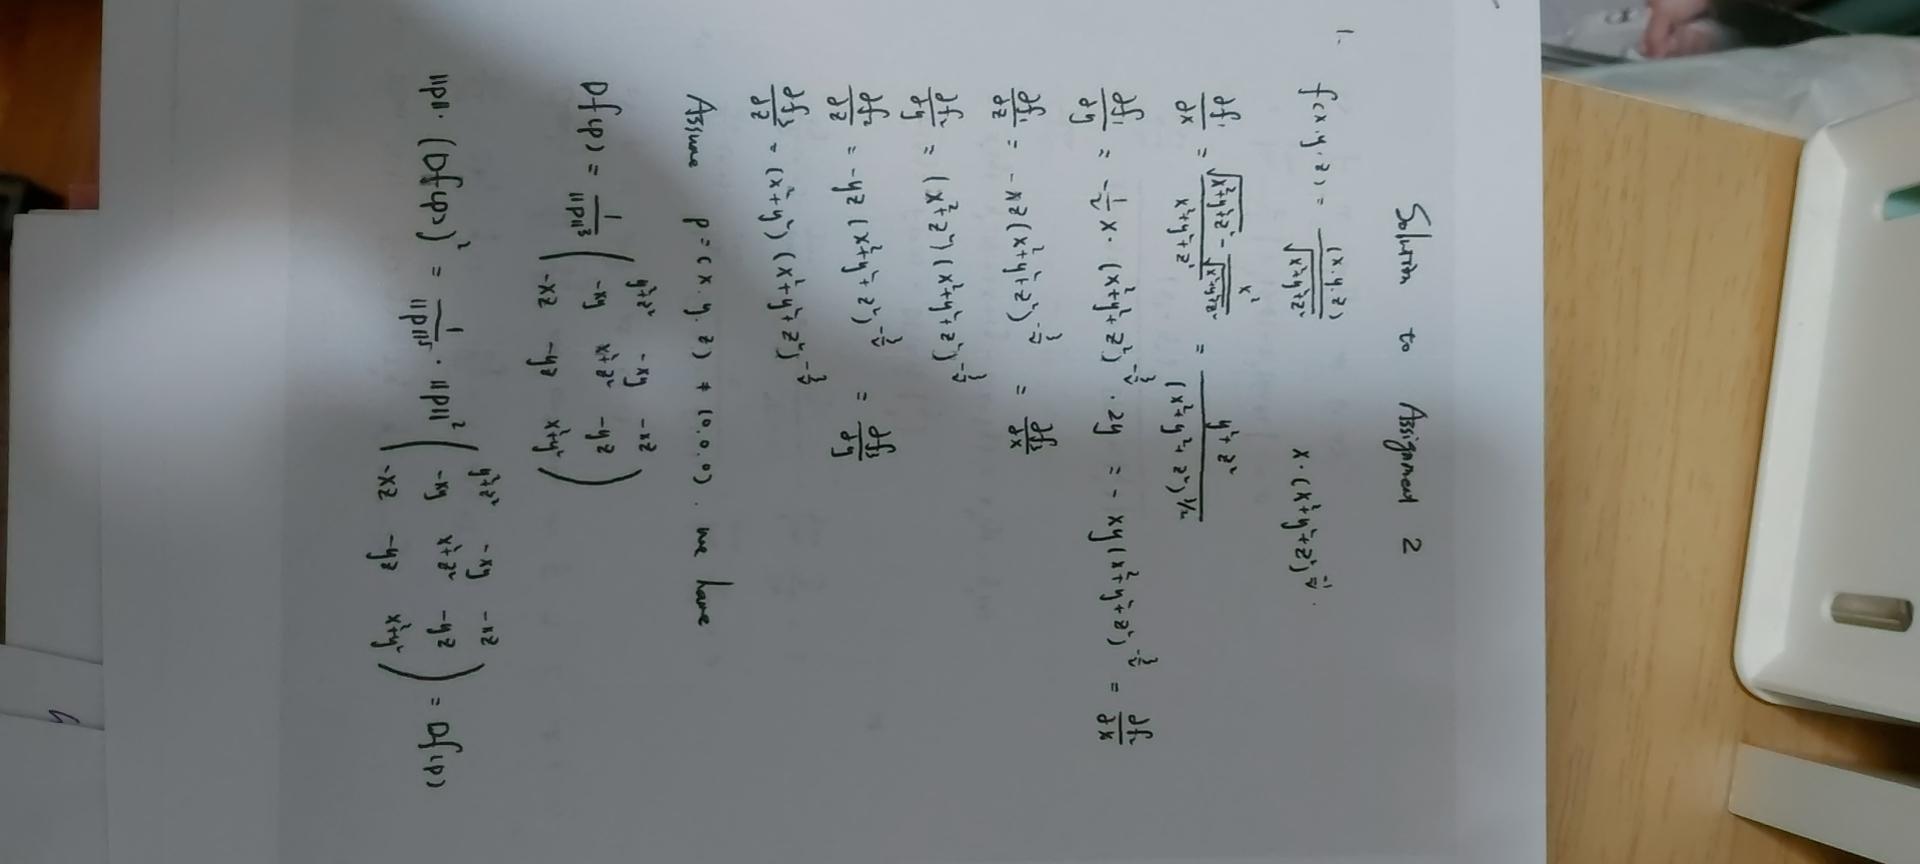 Solution to Assignment 2
1. f(x.y.z) = (x.y.z) / √(x²+y²+z²) x·(x²+y²+z²)^(-1/2).
∂f₁/∂x = (√(x²+y²+z²) - x²/√(x²+y²+z²)) / (x²+y²+z²) = (y²+z²) / (x²+y²+z²)^(3/2)
∂f₁/∂y = -1/2 x · (x²+y²+z²)^(-3/2) · 2y = - xy(x²+y²+z²)^(-3/2) = ∂f₂/∂x
∂f₁/∂z = - xz(x²+y²+z²)^(-3/2) = ∂f₃/∂x
∂f₂/∂y = (x²+z²)(x²+y²+z²)^(-3/2)
∂f₂/∂z = -yz(x²+y²+z²)^(-3/2) = ∂f₃/∂y
∂f₃/∂z = (x²+y²)(x²+y²+z²)^(-3/2)
Assume p=(x.y.z) ≠ (0.0.0). we have
Df(p) = 1/||p||³ ( y²+z² -xy -xz
-xy x²+z² -yz
-xz -yz x²+y² )
||p||·(Df(p))² = 1/||p||⁵ · ||p||² ( y²+z² -xy -xz
-xy x²+z² -yz
-xz -yz x²+y² ) = Df(p)